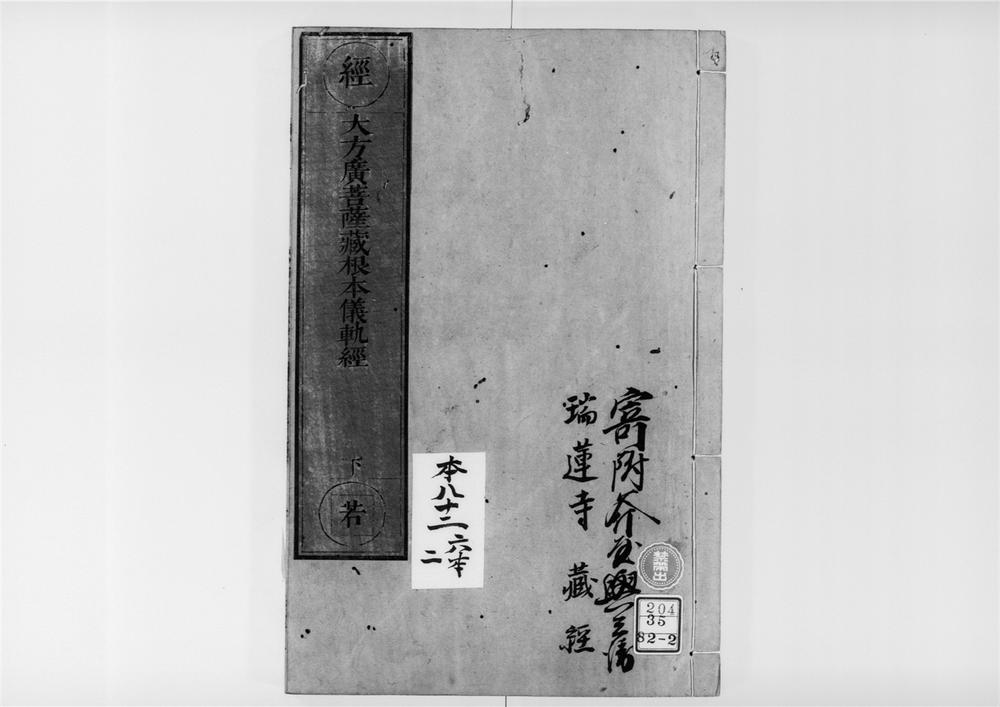 寄附
瑞蓮寺 藏經
經
大方廣菩薩藏根本儀軌經
下
若
本八十二
六本
二
禁帶出
204
35
82-2